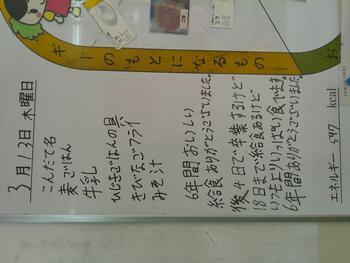 チのもとになるもの
お
3月13日 木曜日
こんだて名
麦ごはん
牛乳
ひじきごはんの具
きびなごフライ
みそ汁
6年間おいしい
給食ありがとうございました。
後4日で卒業するけど
18日まで給食あるけど
いつもよりいっぱい食べてます。
6年間ありがとうございました。
エネルギー 597 kcal